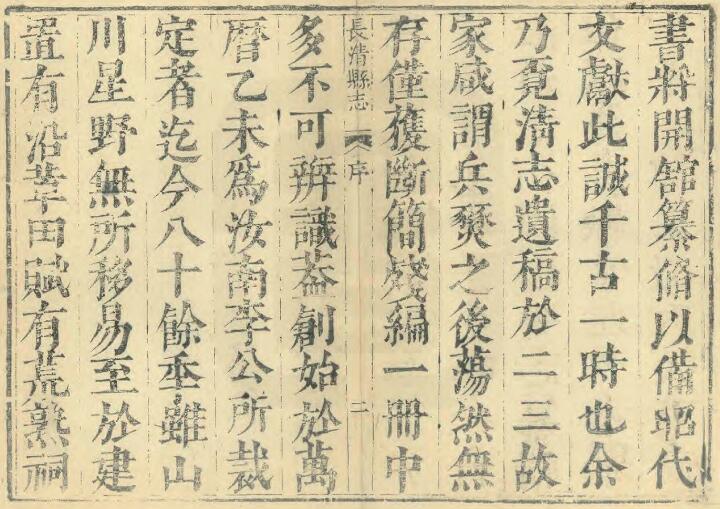 書將開舘纂脩以備昭代
文獻此誠千古一時也余
乃覔淸志遺稿於二三故
家咸謂兵燹之後蕩然無
存僅獲斷簡殘編一冊中
多不可辨識葢創始於萬
長淸縣志 序 二
曆乙未爲汝南李公所裁
定者迄今八十餘秊雖山
川星野無所移易至於建
置有沿革田賦有荒熟祠